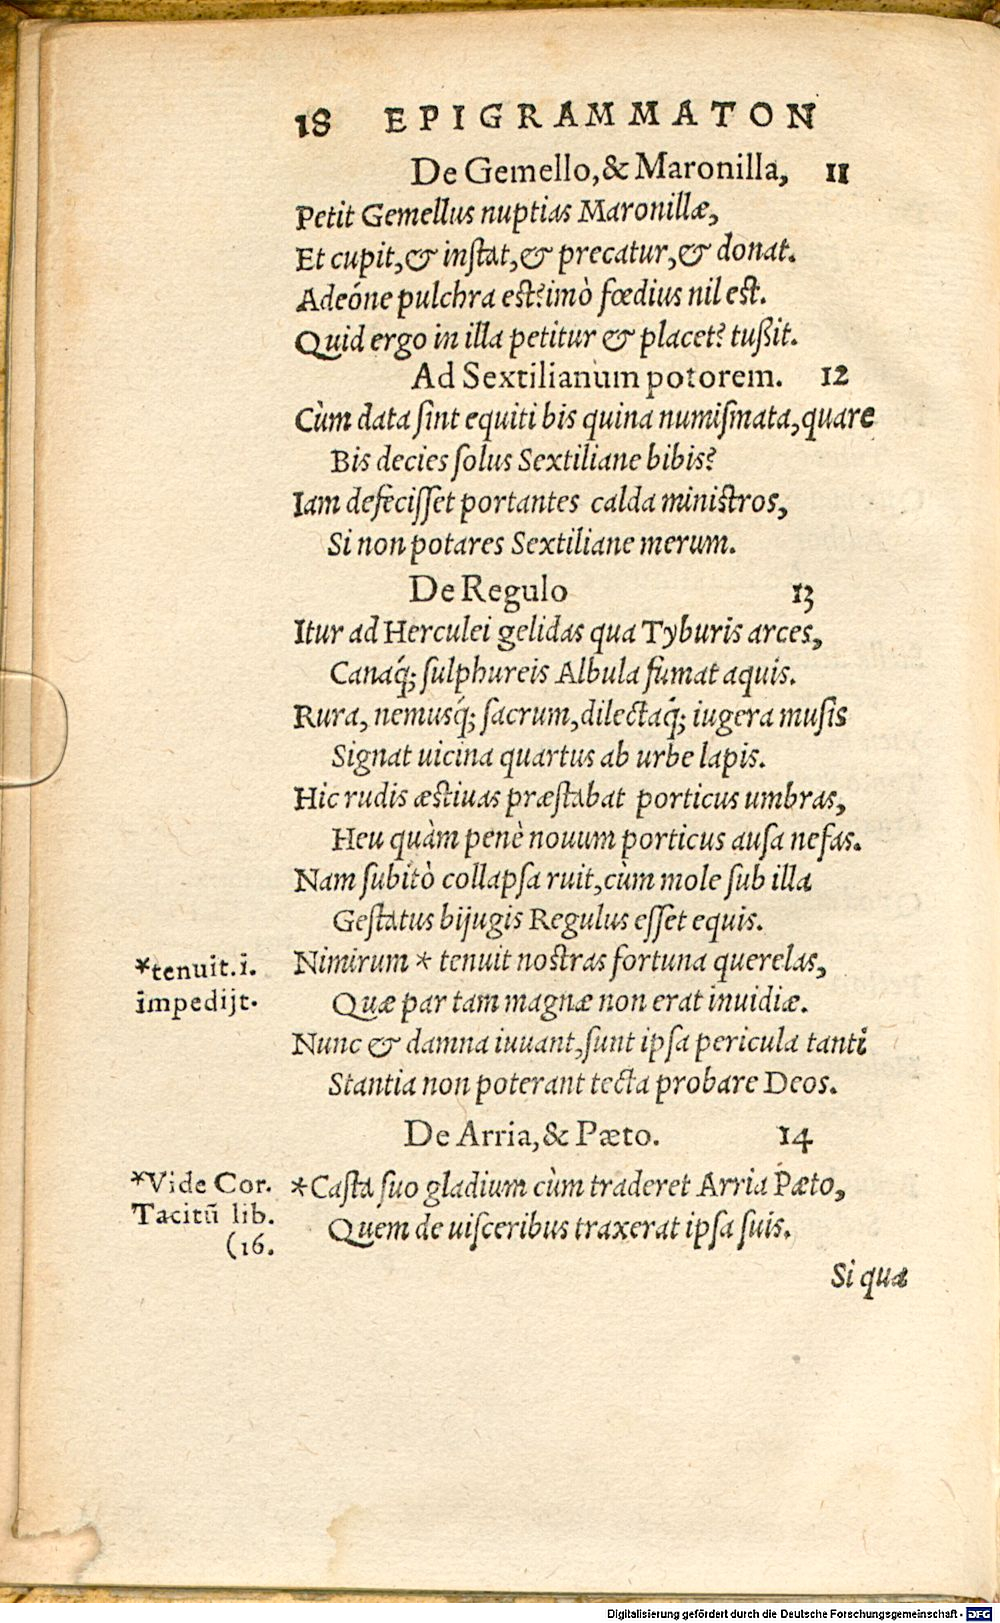 18 EPIGRAMMATON
De Gemello, & Maronilla, 11
Petit Gemellus nuptias Maronillæ,
Et cupit, & inſtat, & precatur, & donat.
Adeóne pulchra est? imò fœdius nil est.
Quid ergo in illa petitur & placet? tußit.
Ad Sextilianum potorem. 12
Cùm data ſint equiti bis quina numiſmata, quare
Bis decies ſolus Sextiliane bibis?
Iam defeciſſet portantes calda ministros,
Si non potares Sextiliane merum.
De Regulo 13
Itur ad Herculei gelidas qua Tyburis arces,
Canaq́; ſulphureis Albula fumat aquis.
Rura, nemusq́; ſacrum, dilectaq́; iugera muſis
Signat uicina quartus ab urbe lapis.
Hic rudis æstiuas præſtabat porticus umbras,
Heu quàm penè nouum porticus auſa nefas.
Nam ſubitò collapſa ruit, cùm mole ſub illa
Geſtatus bijugis Regulus eſſet equis.
*tenuit. i.
impedijt.
Nimirum * tenuit nostras fortuna querelas,
Quæ par tam magnæ non erat inuidiæ.
Nunc & damna iuuant, ſunt ipſa pericula tanti
Stantia non poterant tecta probare Deos.
De Arria, & Pæto. 14
*Vide Cor.
Tacitũ lib.
(16.
*Caſta ſuo gladium cùm traderet Arria Pæto,
Quem de uiſceribus traxerat ipſa ſuis.
Si qua
Digitalisierung gefördert durch die Deutsche Forschungsgemeinschaft - DFG